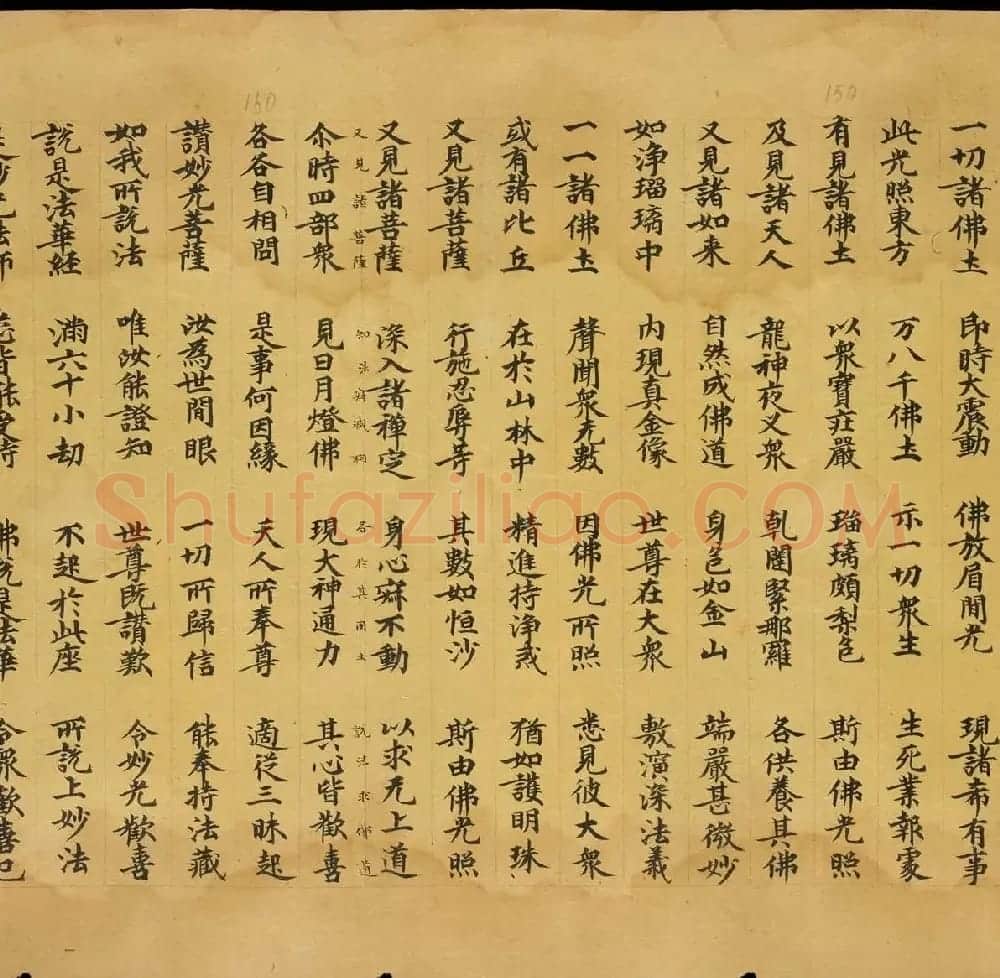 150
160
一切諸佛土 即時大震動 佛放眉間光 現諸希有事
此光照東方 万八千佛土 示一切衆生 生死業報處
有見諸佛土 以衆寶莊嚴 瑠璃頗梨色 斯由佛光照
及見諸天人 龍神夜叉衆 乹闥緊那羅 各供養其佛
又見諸如来 自然成佛道 身色如金山 端嚴甚微妙
如淨瑠璃中 内現真金像 世尊在大衆 敷演深法義
一一諸佛土 聲聞衆无數 因佛光所照 悉見彼大衆
或有諸比丘 在於山林中 精進持淨戒 猶如護明珠
又見諸菩薩 行施忍辱等 其數如恒沙 斯由佛光照
又見諸菩薩 深入諸禪定 身心寂不動 以求无上道
又見諸菩薩 知法寂滅相 各於其國土 説法求佛道
尒時四部衆 見日月燈佛 現大神通力 其心皆歡喜
各各自相問 是事何因緣 天人所奉尊 適從三昧起
讚妙光菩薩 汝為世間眼 一切所歸信 能奉持法藏
如我所說法 唯汝能證知 世尊既讚歎 令妙光歡喜
說是法華經 滿六十小劫 不起於此座 所說上妙法
是妙光法師 悉皆能受持 佛說是法華 令衆歡喜已
Shufaziliao.COM